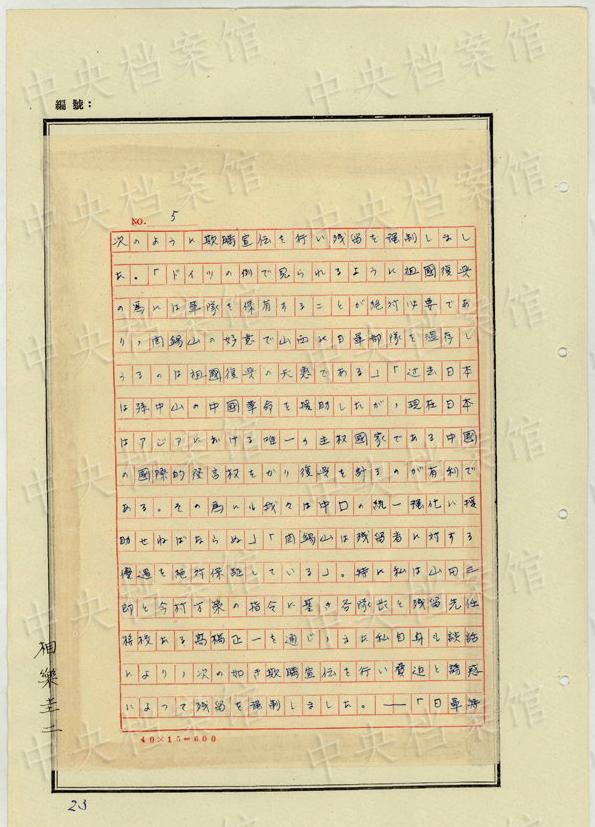 中央档案馆
編號：
NO. 5
次のように欺瞞宣伝を行い残留を强制しまし
た。「ドイツの例で見られるように祖國復興
の為には軍隊を保有することが絶対必要であ
り、閻錫山の好意で山西に日軍部隊を温存し
うるのは祖國復興の天惠である」「过去日本
は孫中山の中國革命を援助したが、現在日本
はアジアにおける唯一の主权國家である中國
の國際的発言权をかり復興を計るのが有利で
ある。その為にも我々は中口の統一强化に援
助せねばならぬ」「閻錫山は残留者に対する
優遇を絶対保証している」。特に私は山田三
郎と今村方策の指令に基き各隊長と残留先任
将校ある高橋正一を通じ、又私自身も訓話
により、次の如き欺瞞宣伝を行い脅迫と誘惑
によって残留を强制しました。――「日軍将
40×15=600
相樂圭二
23